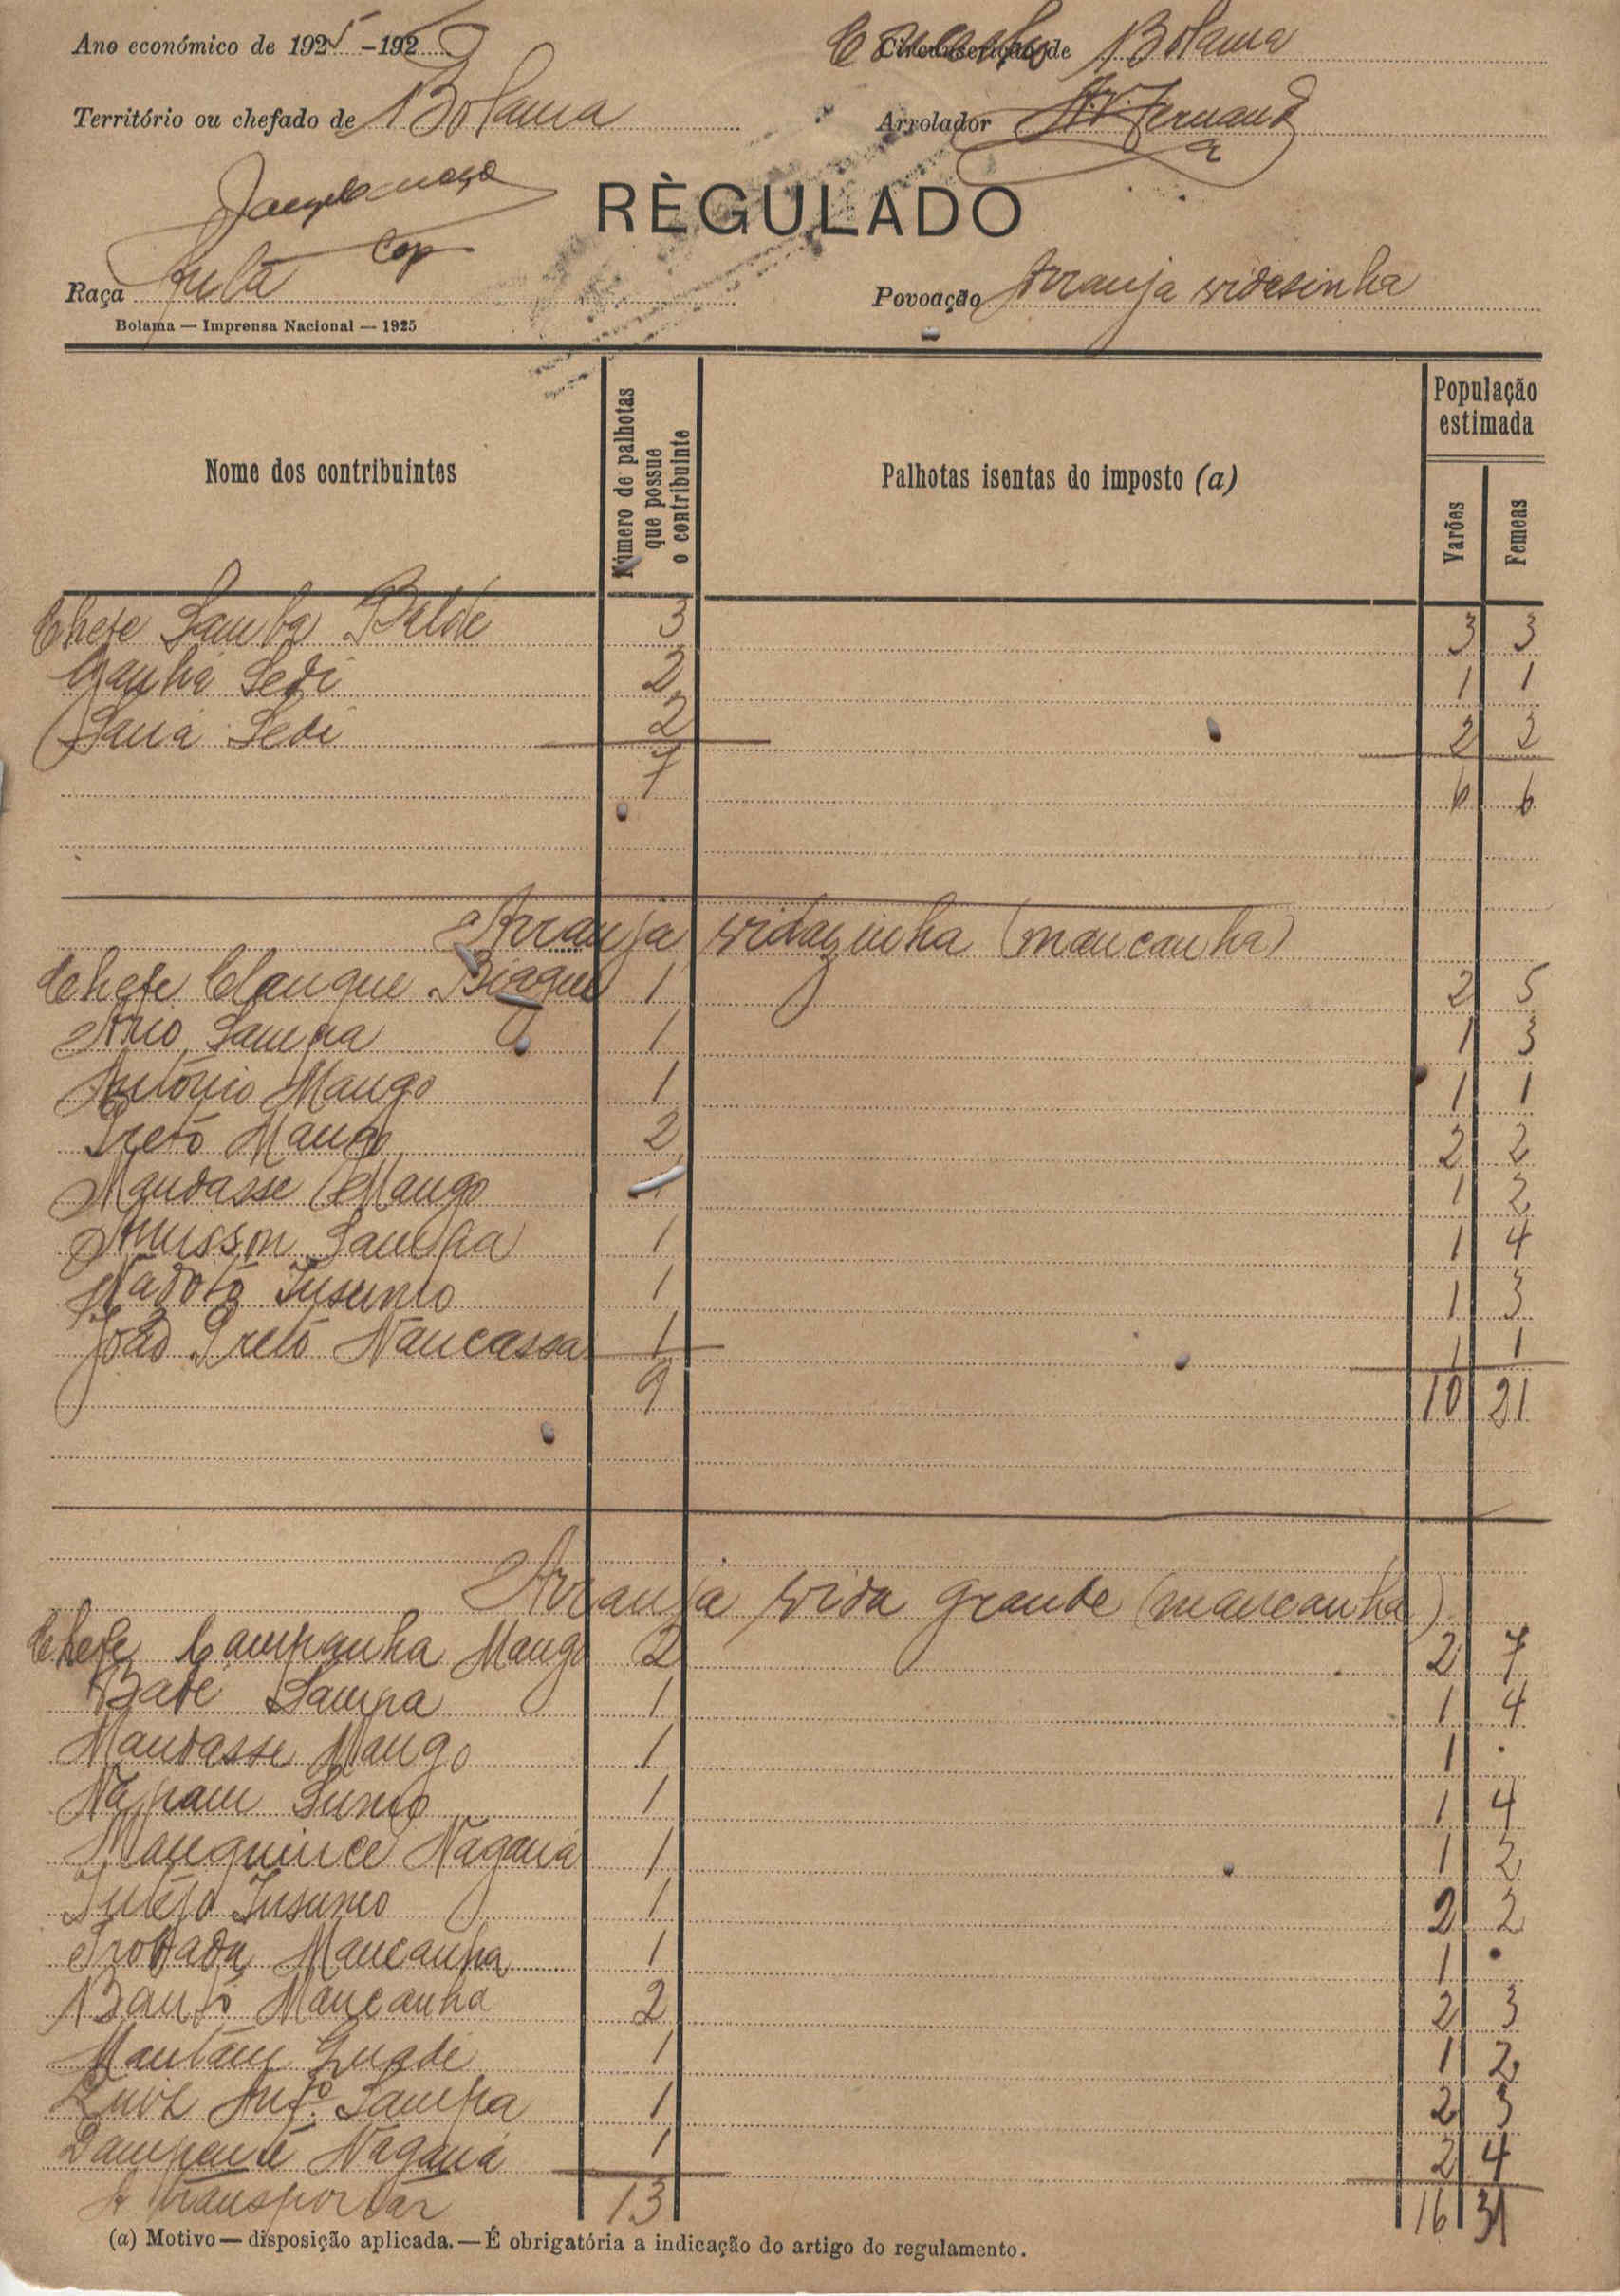 Ano económico de 1925-192
Concelho de Bolama
Território ou chefado de Bolama
Arrolador Fernand
RÈGULADO
Raça Fula
Povoação Arranja vidasinha
Bolama — Imprensa Nacional — 1925
Nome dos contribuintes
Número de palhotas que possue o contribuinte
Palhotas isentas do imposto (a)
População estimada
Varões
Femeas
Chefe Samba Baldé 3 3 3
Sedi 2 1 1
Sana Sedi 2 2 2
7 6 6
Arranja vidazinha (mancanha)
Chefe Clanque Biague 1 2 5
Sampa 1 1 3
António Mango 1 1 1
Preto Mango 2 2 2
Mandasse Mango 1 1 2
Sampa 1 1 4
Nadotó 1 1 3
João Preto Nancassa 1 1 1
9 10 21
Arranja vida grande (mancanha)
Chefe Campanha Mango 2 2 7
Bate Sampa 1 1 4
Mandasse Mango 1 1 .
1 1 4
Manguince Nagana 1 1 2
1 2 2
Trobada Mancanha 1 1 .
Mancanha 2 2 3
1 1 2
Luiz Antº. Sampa 1 2 3
Nagana 1 2 4
A transportar 13 16 31
(a) Motivo — disposição aplicada. — É obrigatória a indicação do artigo do regulamento.